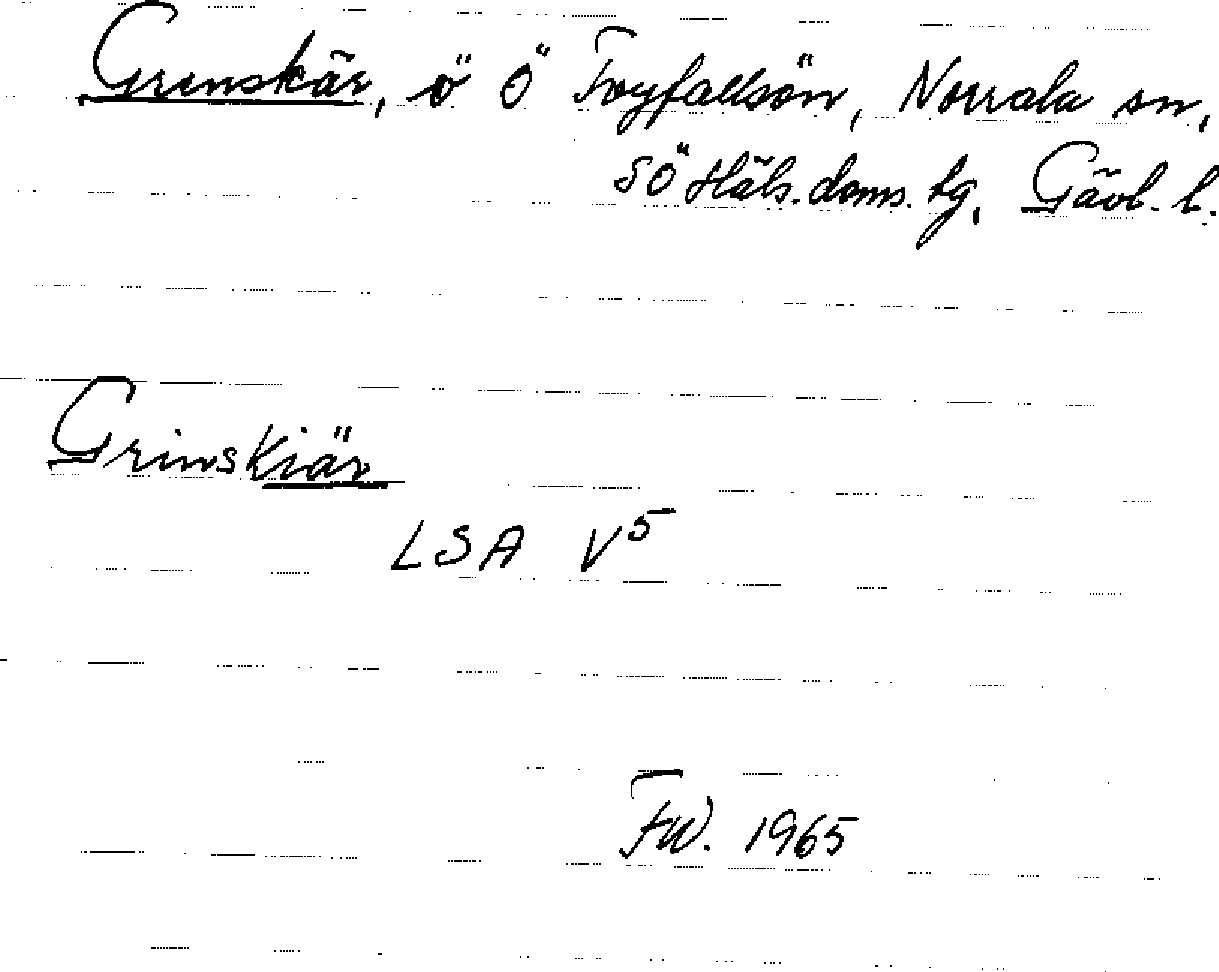 Grenskär, ö Ö Tryfallsön, Norrala sn,
SÖ Häls. doms. tg, Gävl. l.
Grinskiär
LSA V5
FW. 1965